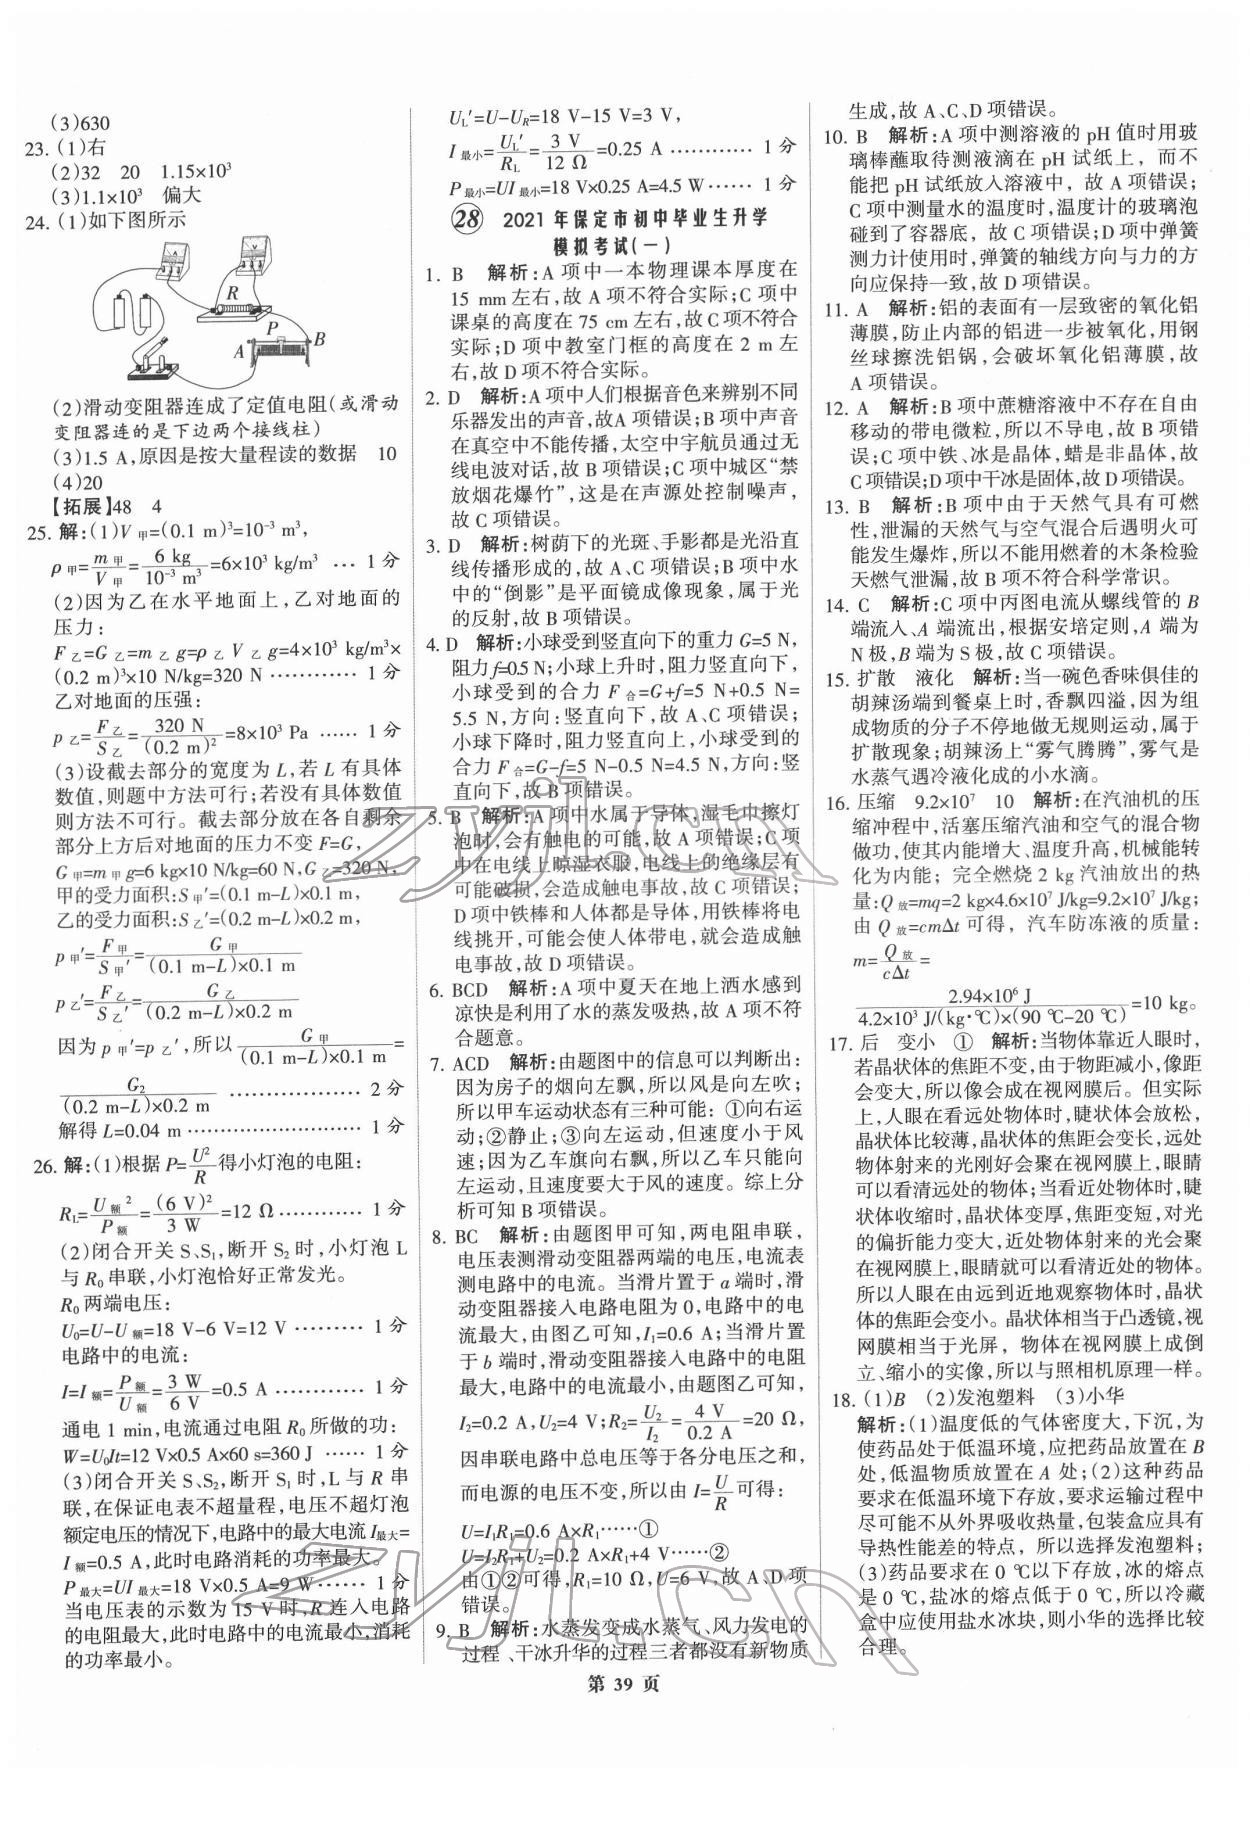 (3)630
23. (1)右
(2)32　20　1.15×10³
(3)1.1×10³　偏大
24. (1)如下图所示
A
V
R
P
A
B
(2)滑动变阻器连成了定值电阻(或滑动
变阻器连的是下边两个接线柱)
(3)1.5 A,原因是按大量程读的数据　10
(4)20
【拓展】48　4
25. 解:(1)V甲=(0.1 m)³=10⁻³ m³,
ρ甲=m甲/V甲=6 kg/10⁻³ m³=6×10³ kg/m³ … 1分
(2)因为乙在水平地面上,乙对地面的
压力:
F乙=G乙=m乙g=ρ乙V乙g=4×10³ kg/m³×
(0.2 m)³×10 N/kg=320 N ………… 1分
乙对地面的压强:
p乙=F乙/S乙=320 N/(0.2 m)²=8×10³ Pa …… 1分
(3)设截去部分的宽度为L,若L有具体
数值,则题中方法可行;若没有具体数值
则方法不可行。截去部分放在各自剩余
部分上方后对地面的压力不变F=G,
G甲=m甲g=6 kg×10 N/kg=60 N,G乙=320 N,
甲的受力面积:S甲′=(0.1 m-L)×0.1 m,
乙的受力面积:S乙′=(0.2 m-L)×0.2 m,
p甲′=F甲/S甲′=G甲/(0.1 m-L)×0.1 m
p乙′=F乙/S乙′=G乙/(0.2 m-L)×0.2 m
因为p甲′=p乙′,所以G甲/(0.1 m-L)×0.1 m=
G₂/(0.2 m-L)×0.2 m ……………… 2分
解得L=0.04 m ……………………… 1分
26. 解:(1)根据P=U²/R得小灯泡的电阻:
R_L=U额²/P额=(6 V)²/3 W=12 Ω ………… 1分
(2)闭合开关S、S₁,断开S₂时,小灯泡L
与R₀串联,小灯泡恰好正常发光。
R₀两端电压:
U₀=U-U额=18 V-6 V=12 V ……… 1分
电路中的电流:
I=I额=P额/U额=3 W/6 V=0.5 A ………… 1分
通电1 min,电流通过电阻R₀所做的功:
W=U₀It=12 V×0.5 A×60 s=360 J …… 1分
(3)闭合开关S、S₂,断开S₁时,L与R串
联,在保证电表不超量程,电压不超灯泡
额定电压的情况下,电路中的最大电流I最大=
I额=0.5 A,此时电路消耗的功率最大。
P最大=UI最大=18 V×0.5 A=9 W …… 1分
当电压表的示数为15 V时,R连入电路
的电阻最大,此时电路中的电流最小,消耗
的功率最小。
U_L′=U-U_R=18 V-15 V=3 V,
I最小=U_L′/R_L=3 V/12 Ω=0.25 A ………… 1分
P最小=UI最小=18 V×0.25 A=4.5 W …… 1分
28　2021年保定市初中毕业生升学
模拟考试(一)
1. B　解析:A项中一本物理课本厚度在
15 mm左右,故A项不符合实际;C项中
课桌的高度在75 cm左右,故C项不符合
实际;D项中教室门框的高度在2 m左
右,故D项不符合实际。
2. D　解析:A项中人们根据音色来辨别不同
乐器发出的声音,故A项错误;B项中声音
在真空中不能传播,太空中宇航员通过无
线电波对话,故B项错误;C项中城区“禁
放烟花爆竹”,这是在声源处控制噪声,
故C项错误。
3. D　解析:树荫下的光斑、手影都是光沿直
线传播形成的,故A、C项错误;B项中水
中的“倒影”是平面镜成像现象,属于光
的反射,故B项错误。
4. D　解析:小球受到竖直向下的重力G=5 N,
阻力f=0.5 N;小球上升时,阻力竖直向下,
小球受到的合力F合=G+f=5 N+0.5 N=
5.5 N,方向:竖直向下,故A、C项错误;
小球下降时,阻力竖直向上,小球受到的
合力F合=G-f=5 N-0.5 N=4.5 N,方向:竖
直向下,故B项错误。
5. B　解析:A项中水属于导体,湿毛巾擦灯
泡时,会有触电的可能,故A项错误;C项
中在电线上晾湿衣服,电线的绝缘层有
可能破损,会造成触电事故,故C项错误;
D项中铁棒和人体都是导体,用铁棒将电
线挑开,可能会使人体带电,就会造成触
电事故,故D项错误。
6. BCD　解析:A项中夏天在地上洒水感到
凉快是利用了水的蒸发吸热,故A项不符
合题意。
7. ACD　解析:由题图中的信息可以判断出:
因为房子的烟向左飘,所以风是向左吹;
所以甲车运动状态有三种可能:①向右运
动;②静止;③向左运动,但速度小于风
速;因为乙车旗向右飘,所以乙车只能向
左运动,且速度要大于风的速度。综上分
析可知B项错误。
8. BC　解析:由题图甲可知,两电阻串联,
电压表测滑动变阻器两端的电压,电流表
测电路中的电流。当滑片置于a端时,滑
动变阻器接入电路电阻为0,电路中的电
流最大,由图乙可知,I₁=0.6 A;当滑片置
于b端时,滑动变阻器接入电路中的电阻
最大,电路中的电流最小,由题图乙可知,
I₂=0.2 A,U₂=4 V;R₂=U₂/I₂=4 V/0.2 A=20 Ω,
因串联电路中总电压等于各分电压之和,
而电源的电压不变,所以由I=U/R可得:
U=I₁R₁=0.6 A×R₁……①
U=I₂R₁+U₂=0.2 A×R₁+4 V……②
由①②可得,R₁=10 Ω,U=6 V,故A、D项
错误。
9. B　解析:水蒸发变成水蒸气、风力发电的
过程、干冰升华的过程三者都没有新物质
生成,故A、C、D项错误。
10. B　解析:A项中测溶液的pH值时用玻
璃棒蘸取待测液滴在pH试纸上,而不
能把pH试纸放入溶液中,故A项错误;
C项中测量水的温度时,温度计的玻璃泡
碰到了容器底,故C项错误;D项中弹簧
测力计使用时,弹簧的轴线方向与力的方
向应保持一致,故D项错误。
11. A　解析:铝的表面有一层致密的氧化铝
薄膜,防止内部的铝进一步被氧化,用钢
丝球擦洗铝锅,会破坏氧化铝薄膜,故
A项错误。
12. A　解析:B项中蔗糖溶液中不存在自由
移动的带电微粒,所以不导电,故B项错
误;C项中铁、冰是晶体,蜡是非晶体,故
C项错误;D项中干冰是固体,故D项错误。
13. B　解析:B项中由于天然气具有可燃
性,泄漏的天然气与空气混合后遇明火可
能发生爆炸,所以不能用燃着的木条检验
天然气泄漏,故B项不符合科学常识。
14. C　解析:C项中丙图电流从螺线管的B
端流入、A端流出,根据安培定则,A端为
N极,B端为S极,故C项错误。
15. 扩散　液化　解析:当一碗色香味俱佳的
胡辣汤端到餐桌上时,香飘四溢,因为组
成物质的分子不停地做无规则运动,属于
扩散现象;胡辣汤上“雾气腾腾”,雾气是
水蒸气遇冷液化成的小水滴。
16. 压缩　9.2×10⁷　10　解析:在汽油机的压
缩冲程中,活塞压缩汽油和空气的混合物
做功,使其内能增大、温度升高,机械能转
化为内能;完全燃烧2 kg汽油放出的热
量:Q放=mq=2 kg×4.6×10⁷ J/kg=9.2×10⁷ J/kg;
由Q放=cmΔt可得,汽车防冻液的质量:
m=Q放/cΔt=
2.94×10⁶ J/4.2×10³ J/(kg·℃)×(90 ℃-20 ℃)=10 kg。
17. 后　变小　①　解析:当物体靠近人眼时,
若晶状体的焦距不变,由于物距减小,像距
会变大,所以像会成在视网膜后。但实际
上,人眼在看远处物体时,睫状体会放松,
晶状体比较薄,晶状体的焦距会变长,远处
物体射来的光刚好会聚在视网膜上,眼睛
可以看清远处的物体;当看近处物体时,睫
状体收缩时,晶状体变厚,焦距变短,对光
的偏折能力变大,近处物体射来的光会聚
在视网膜上,眼睛就可以看清近处的物体。
所以人眼在由远到近地观察物体时,晶状
体的焦距会变小。晶状体相当于凸透镜,视
网膜相当于光屏,物体在视网膜上成倒
立、缩小的实像,所以与照相机原理一样。
18. (1)B　(2)发泡塑料　(3)小华
解析:(1)温度低的气体密度大,下沉,为
使药品处于低温环境,应把药品放置在B
处,低温物质放置在A处;(2)这种药品
要求在低温环境下存放,要求运输过程中
尽可能不从外界吸收热量,包装盒应具有
导热性能差的特点,所以选择发泡塑料;
(3)药品要求在0 ℃以下存放,冰的熔点
是0 ℃,盐冰的熔点低于0 ℃,所以冷藏
盒中应使用盐水冰块,则小华的选择比较
合理。
第 39 页
zyjl.cn
zyjl.cn